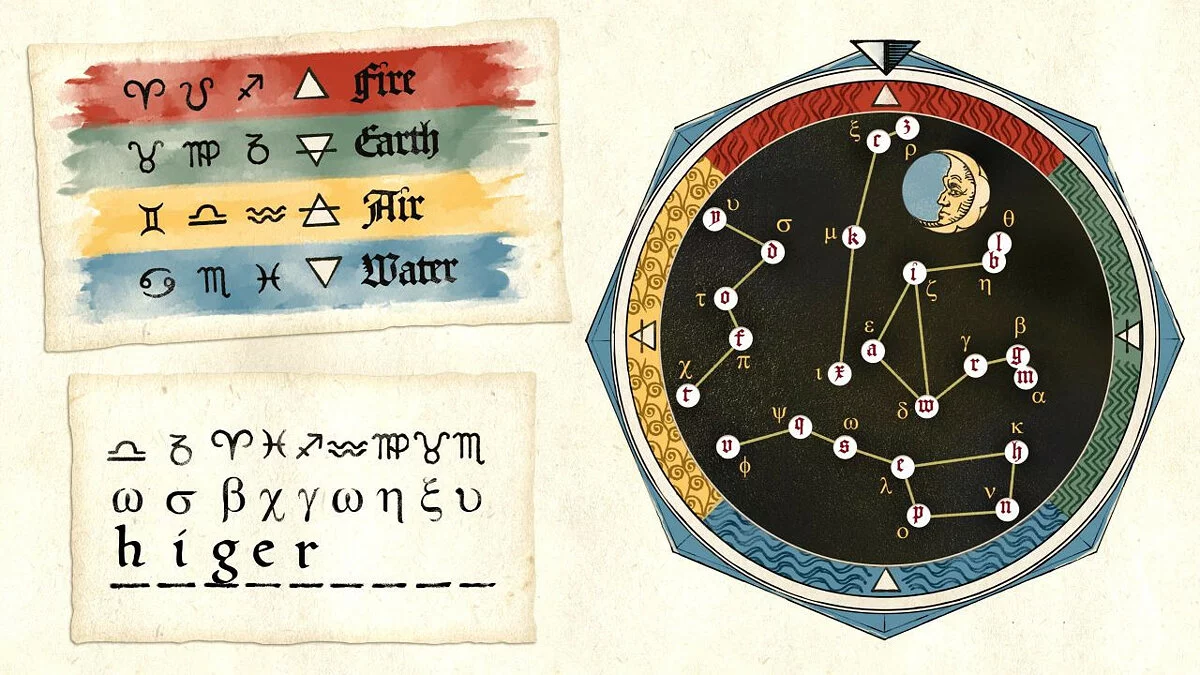 ♈ ♌ ♐ 🜂 Fire
♉ ♍ ♑ 🜃 Earth
♊ ♎ ♒ 🜁 Air
♋ ♏ ♓ 🜄 Water
♎ ♑ ♈ ♓ ♐ ♒ ♍ ♉ ♏
ω σ β χ γ ω η ξ υ
h i g e r
ξ c z ρ
y υ
d σ
μ k
l θ
b η
i ζ
τ o
f π
ε a
γ r
β g
m α
ι x
χ t
δ w
ψ q
v φ
s ω
e λ
κ h
ν n
p ο